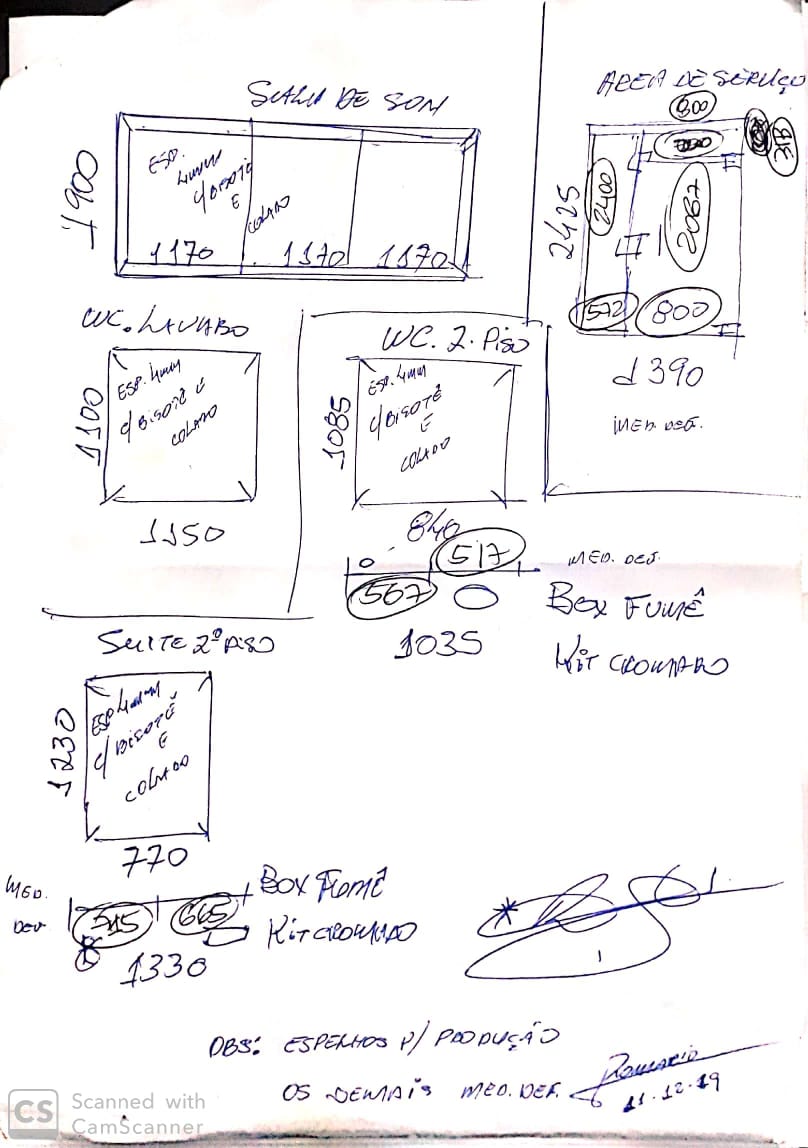 SALA DE SOM
1900
ESP.
4MM
C/ BISOTÊ
E
COLADO
1170
1170
1170
AREA DE SERVIÇO
800
313
2425
2400
2067
572
800
1390
MED. DEF.
WC. LAVABO
1100
ESP. 4MM
C/ BISOTÊ E
COLADO
1150
WC. 2. PISO
1085
ESP. 4MM
C/ BISOTÊ
E
COLADO
840
517
567
1035
MED. DEF.
BOX FUMÊ
KIT CROMADO
SUITE 2º PISO
1230
ESP 4MM
C/ BISOTÊ
E
COLADO
770
MED.
DEF
665
1330
BOX FUMÊ
KIT CROMADO
OBS: ESPELHOS P/ PRODUÇÃO
OS DEMAIS MED. DEF.
11.12.19
CS
Scanned with
CamScanner